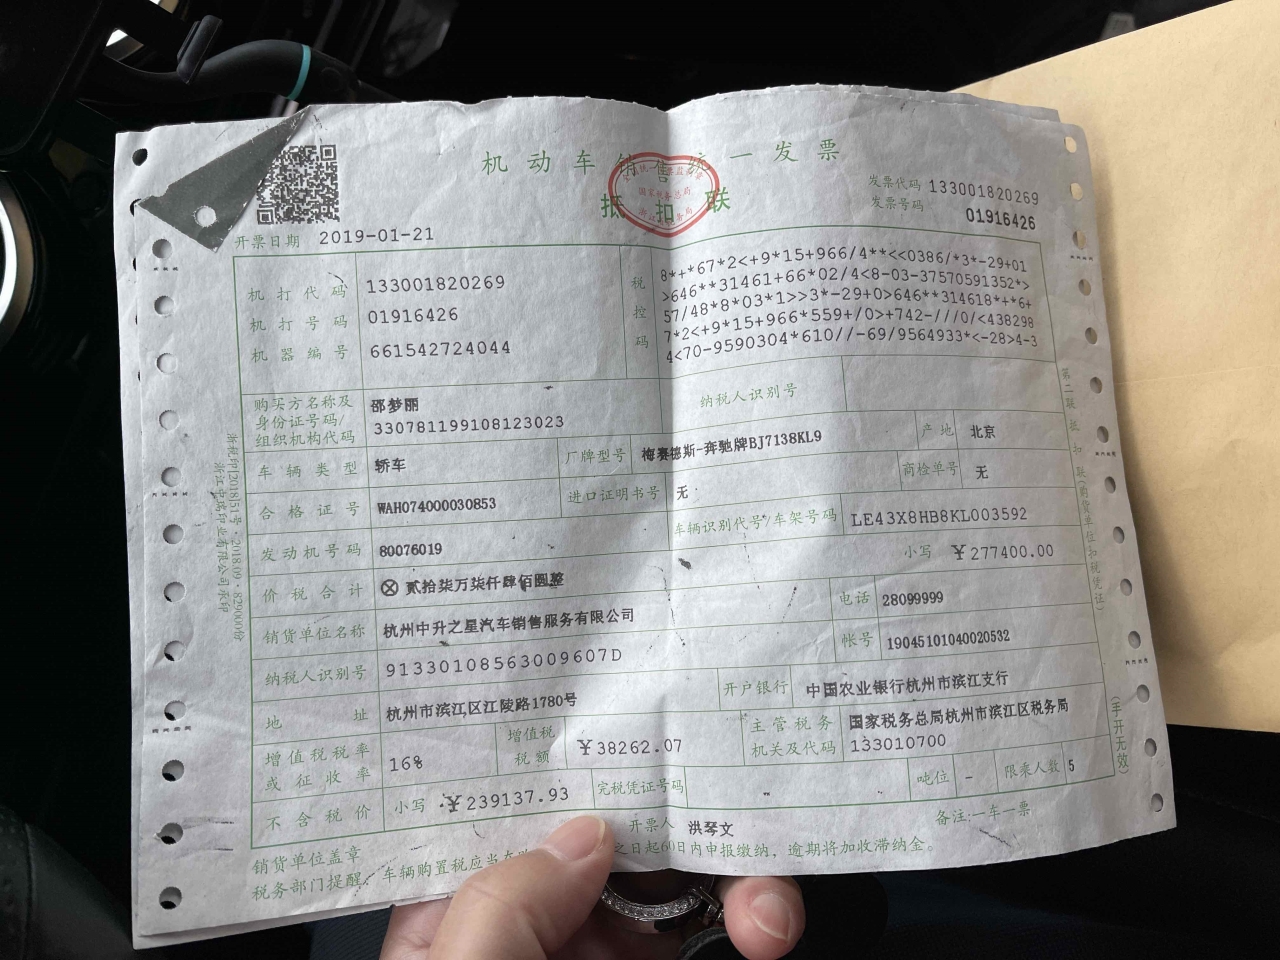 机动车销售统一发票
抵扣联
发票代码 133001820269
发票号码 01916426
开票日期 2019-01-21
机打代码 133001820269
机打号码 01916426
机器编号 661542724044
税控码
8*+*67*2<+9*15+966/4**<<0386/*3*-29+01
>646**31461+66*02/4<8-03-37570591352*>
57/48*8*03*1>>3*-29+0>646**314618*+*6+
7*2<+9*15+966*559+/0>+742-///0/<438298
4<70-9590304*610//-69/9564933*<-28>4-3
购买方名称及身份证号码/组织机构代码 邵梦丽 330781199108123023
纳税人识别号
车辆类型 轿车 厂牌型号 梅赛德斯-奔驰牌BJ7138KL9 产地 北京
合格证号 WAH074000030853 进口证明书号 无 商检单号 无
发动机号码 80076019 车辆识别代号/车架号码 LE43X8HB8KL003592
价税合计 ⊗ 贰拾柒万柒仟肆佰圆整 小写 ¥277400.00
销货单位名称 杭州中升之星汽车销售服务有限公司 电话 28099999
纳税人识别号 91330108563009607D 帐号 19045101040020532
地址 杭州市滨江区江陵路1780号 开户银行 中国农业银行杭州市滨江支行
增值税税率或征收率 16% 增值税税额 ¥38262.07 主管税务机关及代码 国家税务总局杭州市滨江区税务局 133010700
不含税价 小写 ¥239137.93 完税凭证号码 - 吨位 - 限乘人数 5
销货单位盖章 开票人 洪琴文 备注:一车一票
税务部门提醒: 车辆购置税应当在 之日起60日内申报缴纳，逾期将加收滞纳金。
第二联 抵扣联(购货单位扣税凭证)
(手开无效)